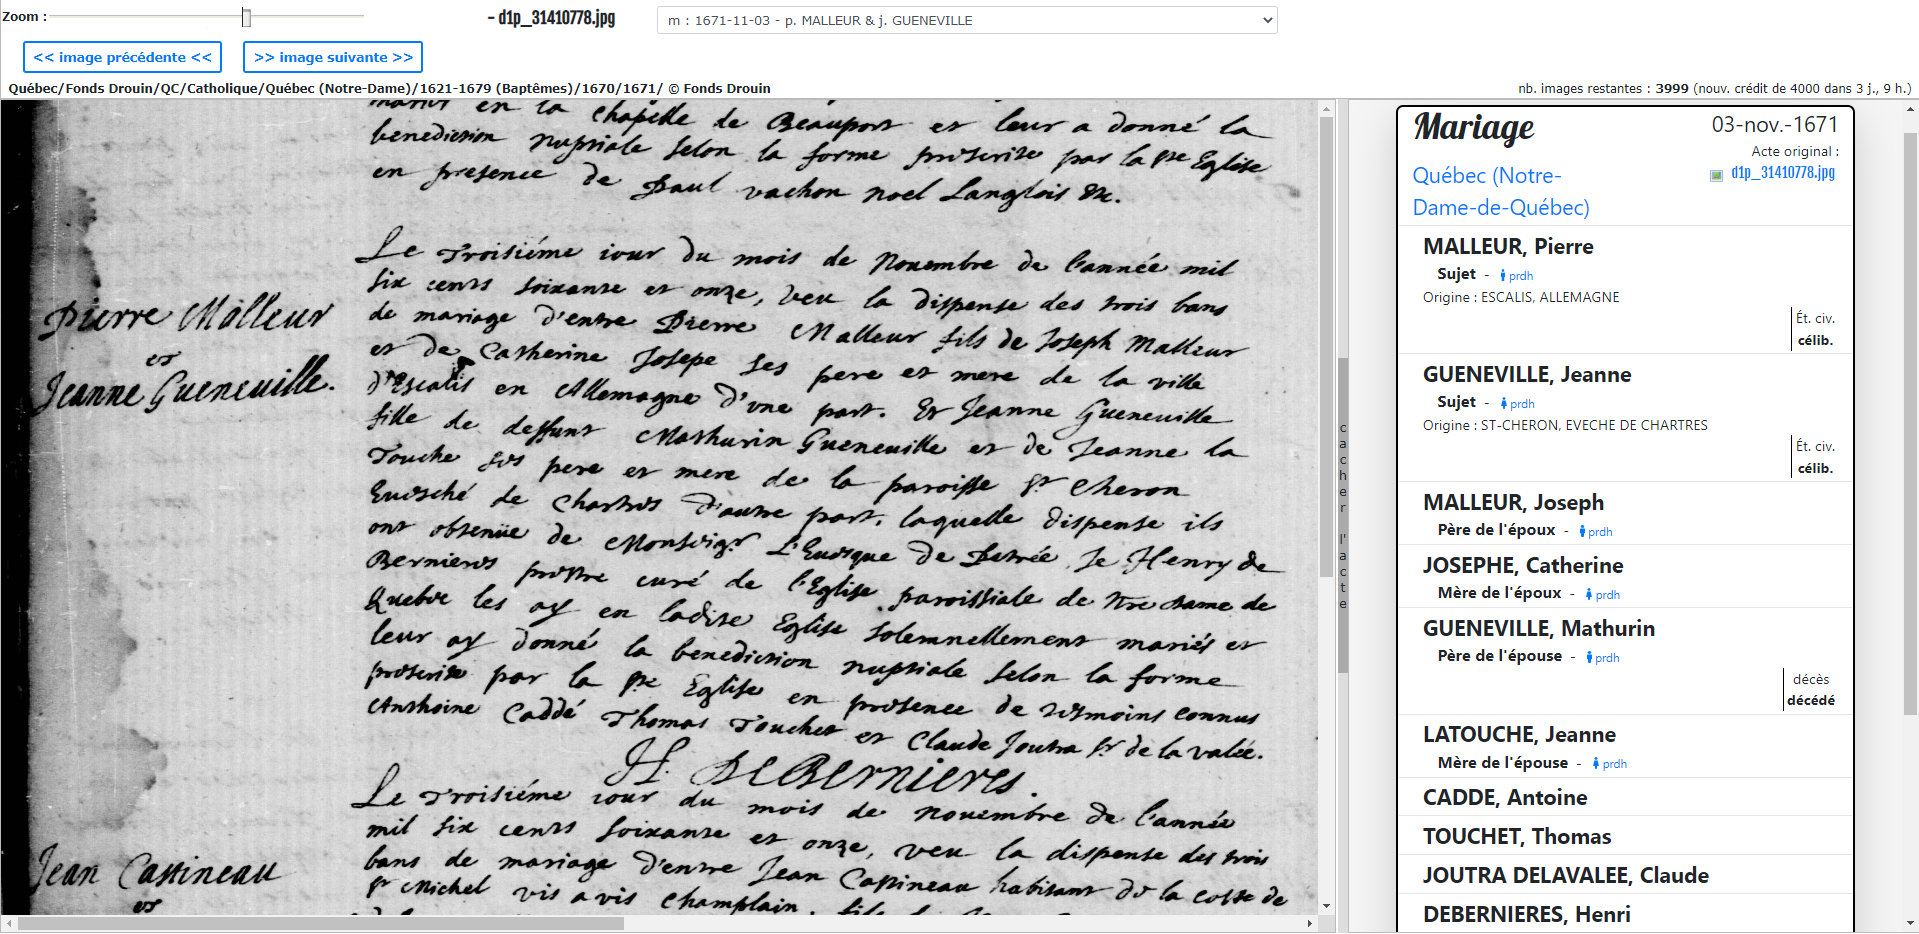 Zoom :
- d1p_31410778.jpg
m : 1671-11-03 - p. MALLEUR & j. GUENEVILLE
<< image précédente <<
>> image suivante >>
Québec/Fonds Drouin/QC/Catholique/Québec (Notre-Dame)/1621-1679 (Baptêmes)/1670/1671/ © Fonds Drouin
nb. images restantes : 3999 (nouv. crédit de 4000 dans 3 j., 9 h.)
mariés en la chapelle de Beauport et leur a donné la
benediction nuptiale selon la forme prescrite par la Ste Eglise
en presence de Paul vachon noel Langlois &c.
Le Troisiéme iour du mois de Nouembre de l'année mil
six cents soixante et onze, veu la dispense des trois bans
de mariage d'entre Pierre Malleur fils de Joseph Malleur
et de Catherine Josepe ses pere et mere de la ville
d'Escalis en Allemagne d'vne part. Et Jeanne Gueneuille
fille de deffunt Mathurin Gueneuille et de Jeanne la
Touche ses pere et mere de la paroisse St Cheron
Euesché de Chartres d'autre part, laquelle dispense ils
ont obtenüe de Monseigr L'Euesque de Petrée, Je Henry de
Bernieres prestre curé de l'Eglise paroissiale de Nre dame de
Quebec les ay en ladite Eglise solemnellement mariés et
leur ay donné la benediction nuptiale selon la forme
prescrite par la Ste Eglise en presence de tesmoins connus
Anthoine Caddé Thomas Touchet et Claude Joutra Sr de la valée.
H. DeBernieres.
Pierre Malleur
et
Jeanne Gueneuille.
Le Troisiéme iour du mois de Nouembre de l'année
mil six cents soixante et onze, veu la dispense des trois
bans de mariage d'entre Jean Castineau habitant de la coste de
St Michel vis a vis Champlain, fils
Jean Castineau
et
cacher l'acte
Mariage
03-nov.-1671
Acte original :
Québec (Notre-
Dame-de-Québec)
d1p_31410778.jpg
MALLEUR, Pierre
Sujet - prdh
Origine : ESCALIS, ALLEMAGNE
Ét. civ.
célib.
GUENEVILLE, Jeanne
Sujet - prdh
Origine : ST-CHERON, EVECHE DE CHARTRES
Ét. civ.
célib.
MALLEUR, Joseph
Père de l'époux - prdh
JOSEPHE, Catherine
Mère de l'époux - prdh
GUENEVILLE, Mathurin
Père de l'épouse - prdh
décès
décédé
LATOUCHE, Jeanne
Mère de l'épouse - prdh
CADDE, Antoine
TOUCHET, Thomas
JOUTRA DELAVALEE, Claude
DEBERNIERES, Henri